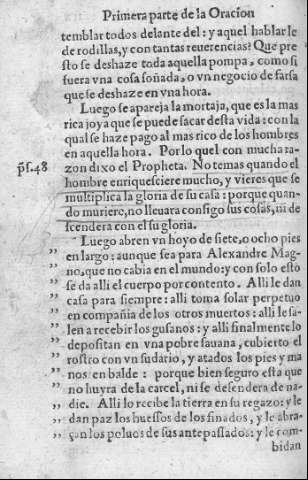 Primera parte de la Oracion
temblar todos delante del: y aquel hablarle
de rodillas, y con tantas reuerencias? Que pre
sto se deshaze toda aquella pompa, como si
fuera vna cosa soñada, o vn negocio de farsa
que se deshaze en vna hora.
Luego se apareja la mortaja, que es la mas
rica joya que se puede sacar desta vida: con la
qual se haze pago al mas rico de los hombres
en aquella hora. Por lo qual con mucha ra-
ps. 48 zon dixo el Propheta. No temas quando el
hombre enriquesciere mucho, y vieres que se
multiplica la gloria de su casa: porque quan-
do muriere, no lleuara consigo sus cosas, ni de
scendera con el su gloria.
Luego abren vn hoyo de siete, o ocho pies
,, en largo: aunque sea para Alexandre Mag-
,, no, que no cabia en el mundo: y con solo esto
,, se da alli el cuerpo por contento. Alli le dan
,, casa para siempre: alli toma solar perpetuo
,, en compañia de los otros muertos: alli le sa-
,, len a recebir los gusanos: y alli finalmente lo
,, depositan en vna pobre sauana, cubierto el
,, rostro con vn sudario, y atados los pies y ma
,, nos en balde: porque bien seguro esta que
,, no huyra de la carcel, ni se defendera de na-
,, die. Alli lo recibe la tierra en su regazo: y le
,, dan paz los huessos de los finados, y le abra-
,, çan los poluos de sus antepassados: y le com-
bidan